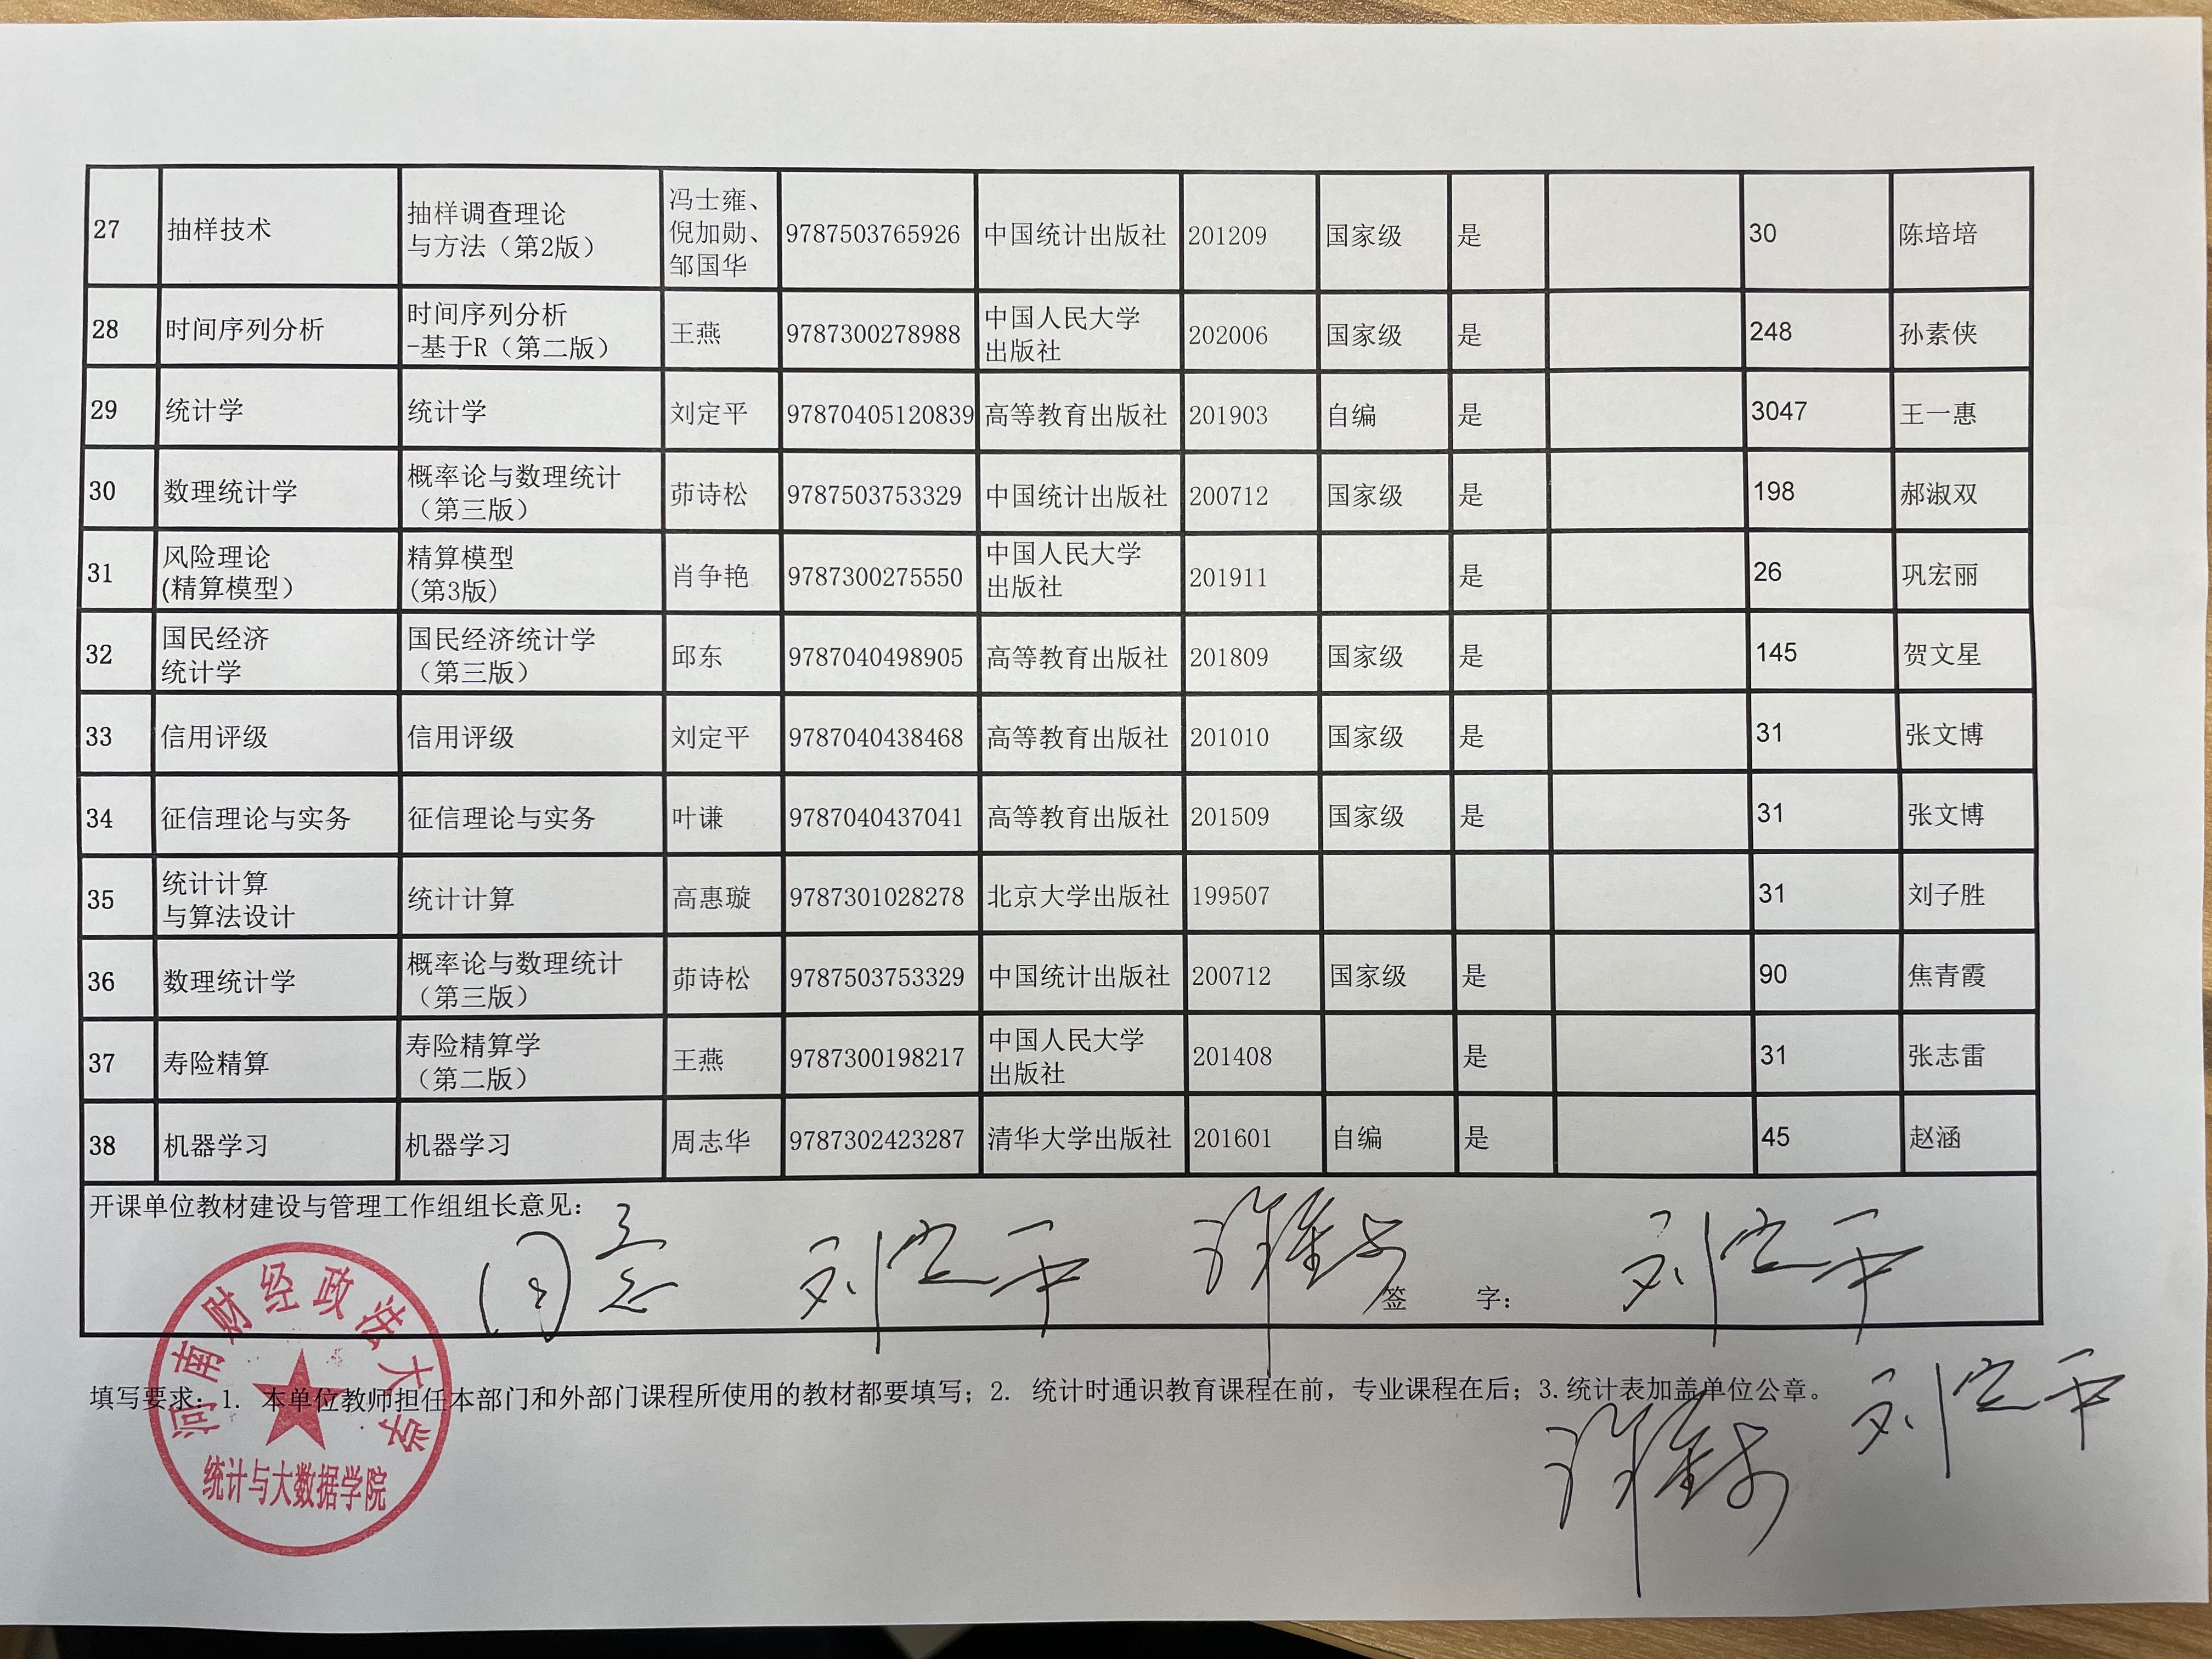 27 抽样技术 抽样调查理论与方法（第2版） 冯士雍、倪加勋、邹国华 9787503765926 中国统计出版社 201209 国家级 是 30 陈培培
28 时间序列分析 时间序列分析-基于R（第二版） 王燕 9787300278988 中国人民大学出版社 202006 国家级 是 248 孙素侠
29 统计学 统计学 刘定平 97870405120839 高等教育出版社 201903 自编 是 3047 王一惠
30 数理统计学 概率论与数理统计（第三版） 茆诗松 9787503753329 中国统计出版社 200712 国家级 是 198 郝淑双
31 风险理论(精算模型） 精算模型(第3版) 肖争艳 9787300275550 中国人民大学出版社 201911 是 26 巩宏丽
32 国民经济统计学 国民经济统计学（第三版） 邱东 9787040498905 高等教育出版社 201809 国家级 是 145 贺文星
33 信用评级 信用评级 刘定平 9787040438468 高等教育出版社 201010 国家级 是 31 张文博
34 征信理论与实务 征信理论与实务 叶谦 9787040437041 高等教育出版社 201509 国家级 是 31 张文博
35 统计计算与算法设计 统计计算 高惠璇 9787301028278 北京大学出版社 199507 31 刘子胜
36 数理统计学 概率论与数理统计（第三版） 茆诗松 9787503753329 中国统计出版社 200712 国家级 是 90 焦青霞
37 寿险精算 寿险精算学（第二版） 王燕 9787300198217 中国人民大学出版社 201408 是 31 张志雷
38 机器学习 机器学习 周志华 9787302423287 清华大学出版社 201601 自编 是 45 赵涵
开课单位教材建设与管理工作组组长意见：
同意 刘定平 签 字： 刘定平
填写要求：1. 本单位教师担任本部门和外部门课程所使用的教材都要填写；2. 统计时通识教育课程在前，专业课程在后；3.统计表加盖单位公章。
刘定平
河南财经政法大学
统计与大数据学院